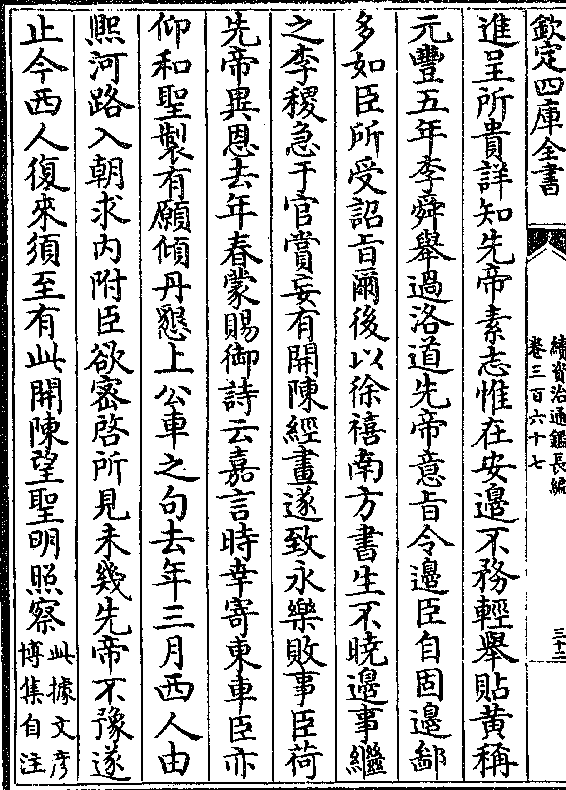 欽定四庫全書
續資治通鑑長編
卷三百六十七
三十三
進呈所貴詳知先帝素志惟在安邊不務輕舉貼黃稱
元豐五年李舜舉過洛道先帝意旨令邊臣自固邊鄙
多如臣所受詔旨爾後以徐禧南方書生不曉邊事繼
之李稷急于官賞妄有開陳經畫遂致永樂敗事臣荷
先帝異恩去年春蒙賜御詩云嘉言時幸寄東車臣亦
仰和聖製有願傾丹懇上公車之句去年三月西人由
熈河路入朝求内附臣欲密啓所見未幾先帝不豫遂
止今西人復來須至有此開陳望聖明照察此據文彦
博集自注